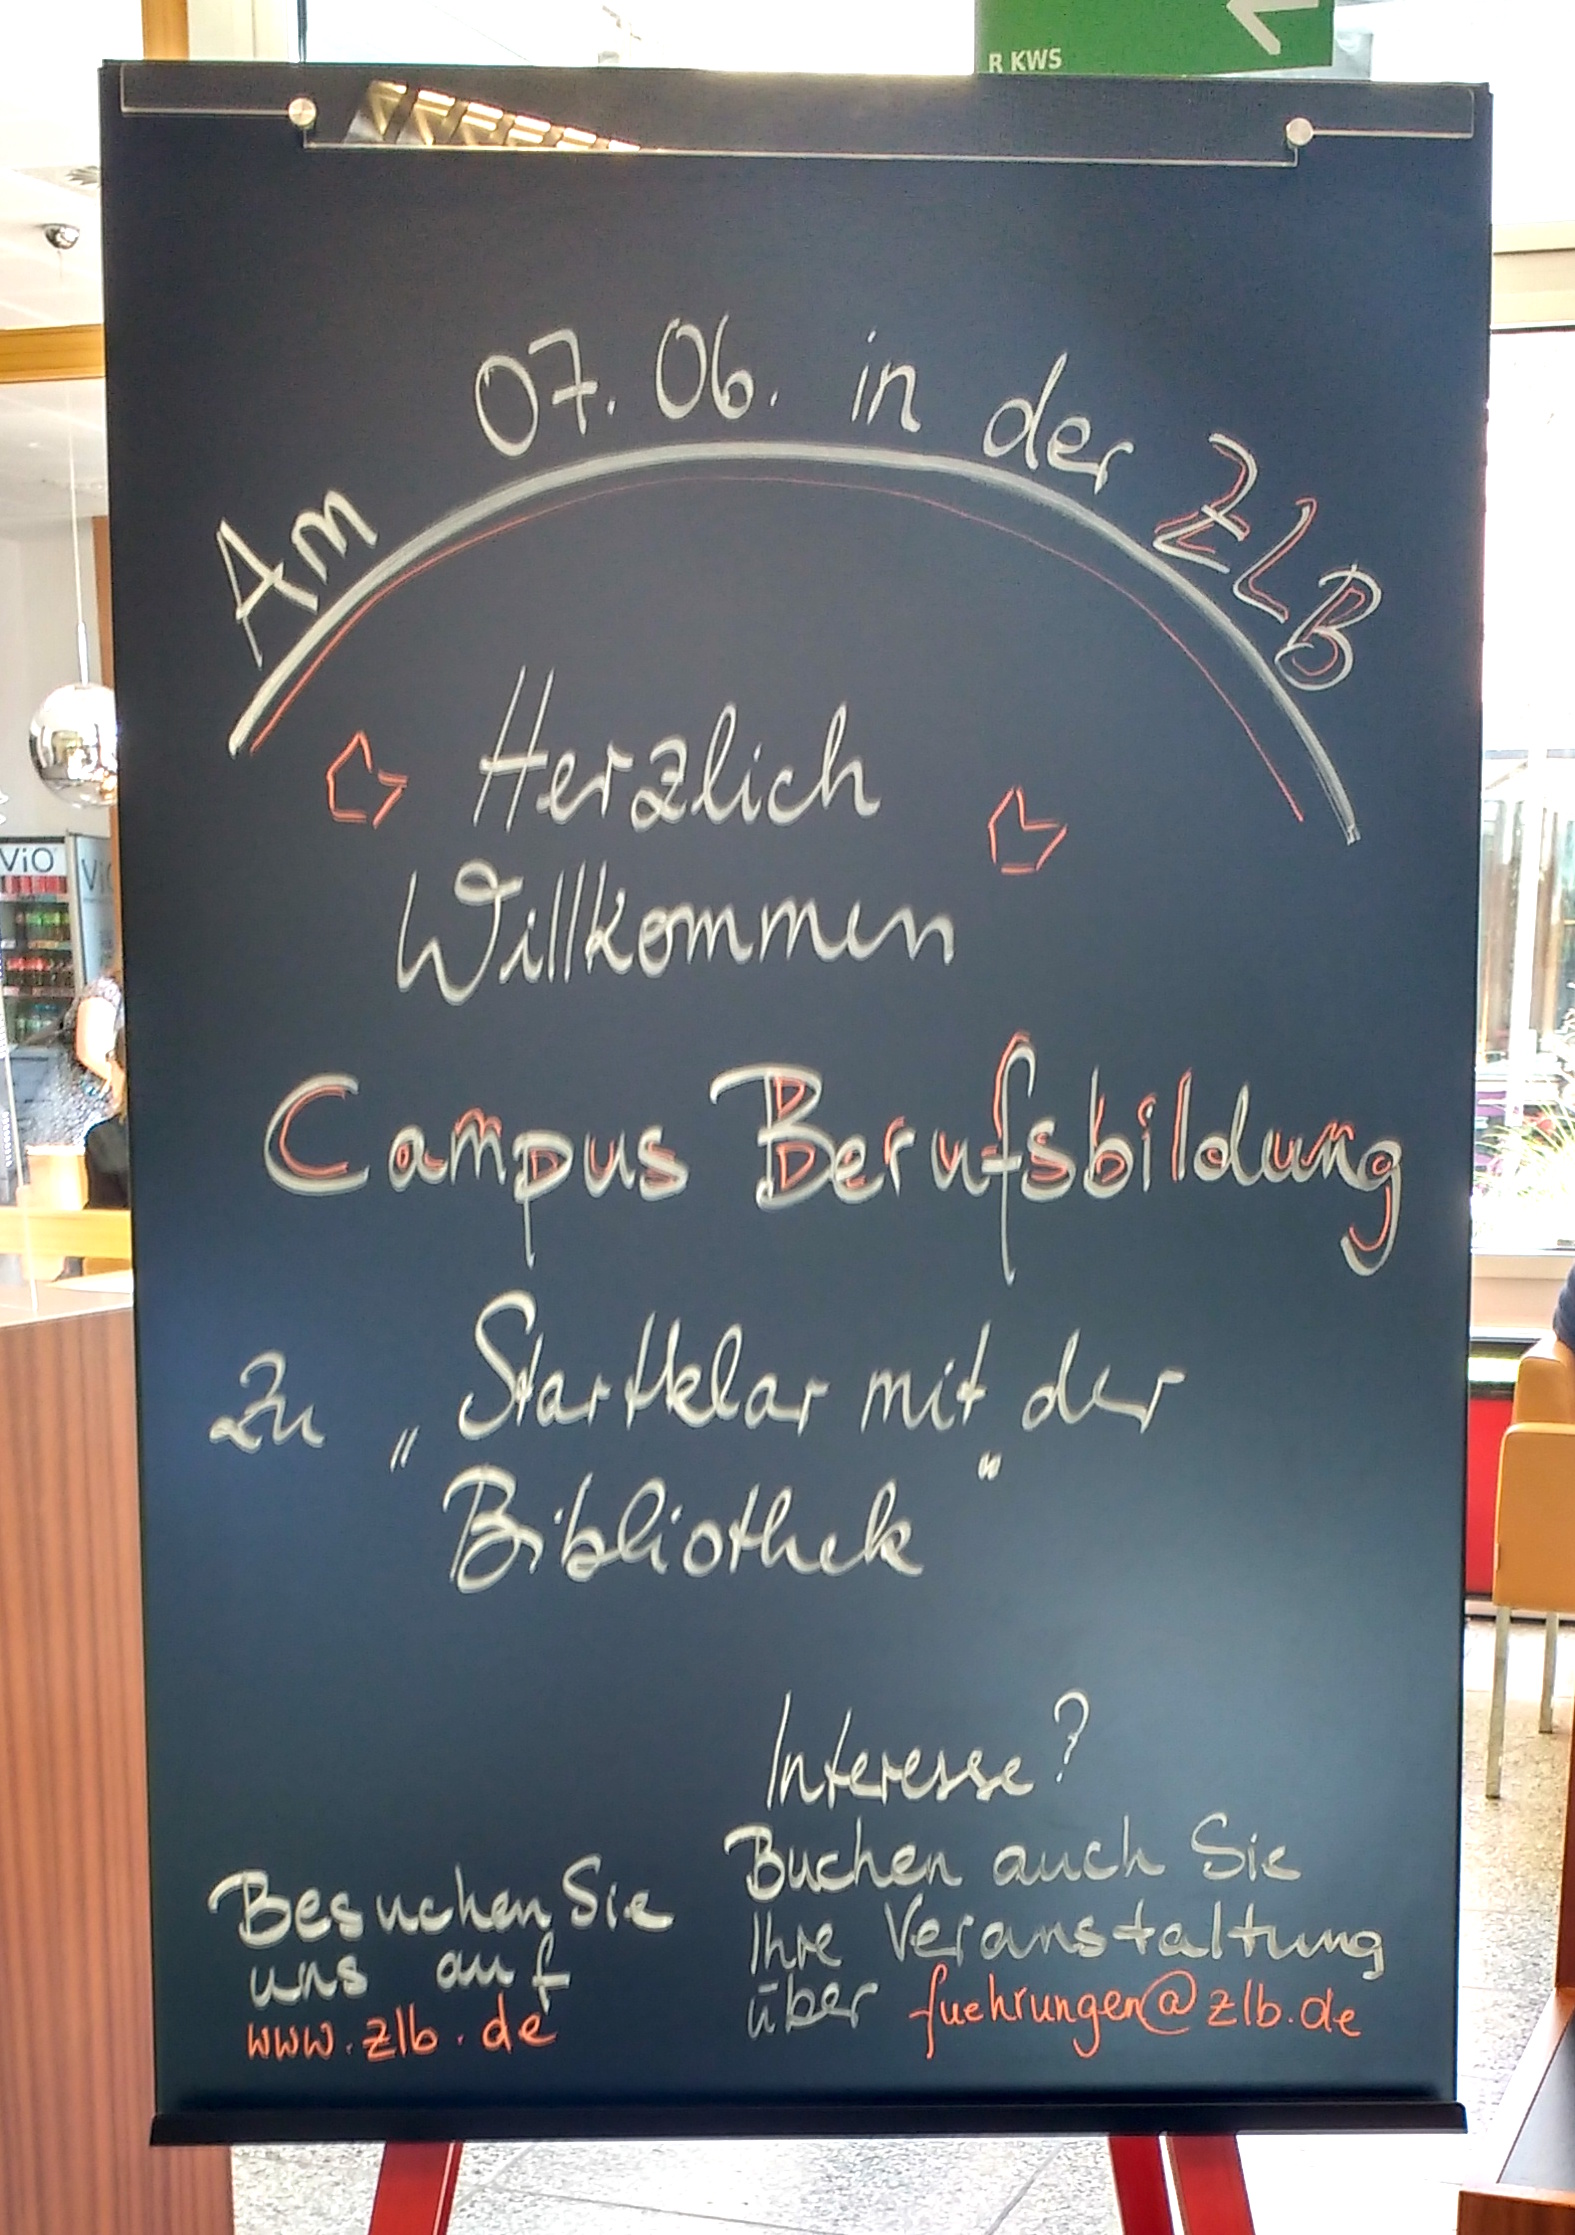 R KWS
Am 07.06. in der ZLB
Herzlich
Willkommen
Campus Berufsbildung
zu „Startklar mit der
Bibliothek“
Interesse?
Buchen auch Sie
Ihre Veranstaltung
über fuehrungen@zlb.de
Besuchen Sie
uns auf
www.zlb.de
ViO
Vi